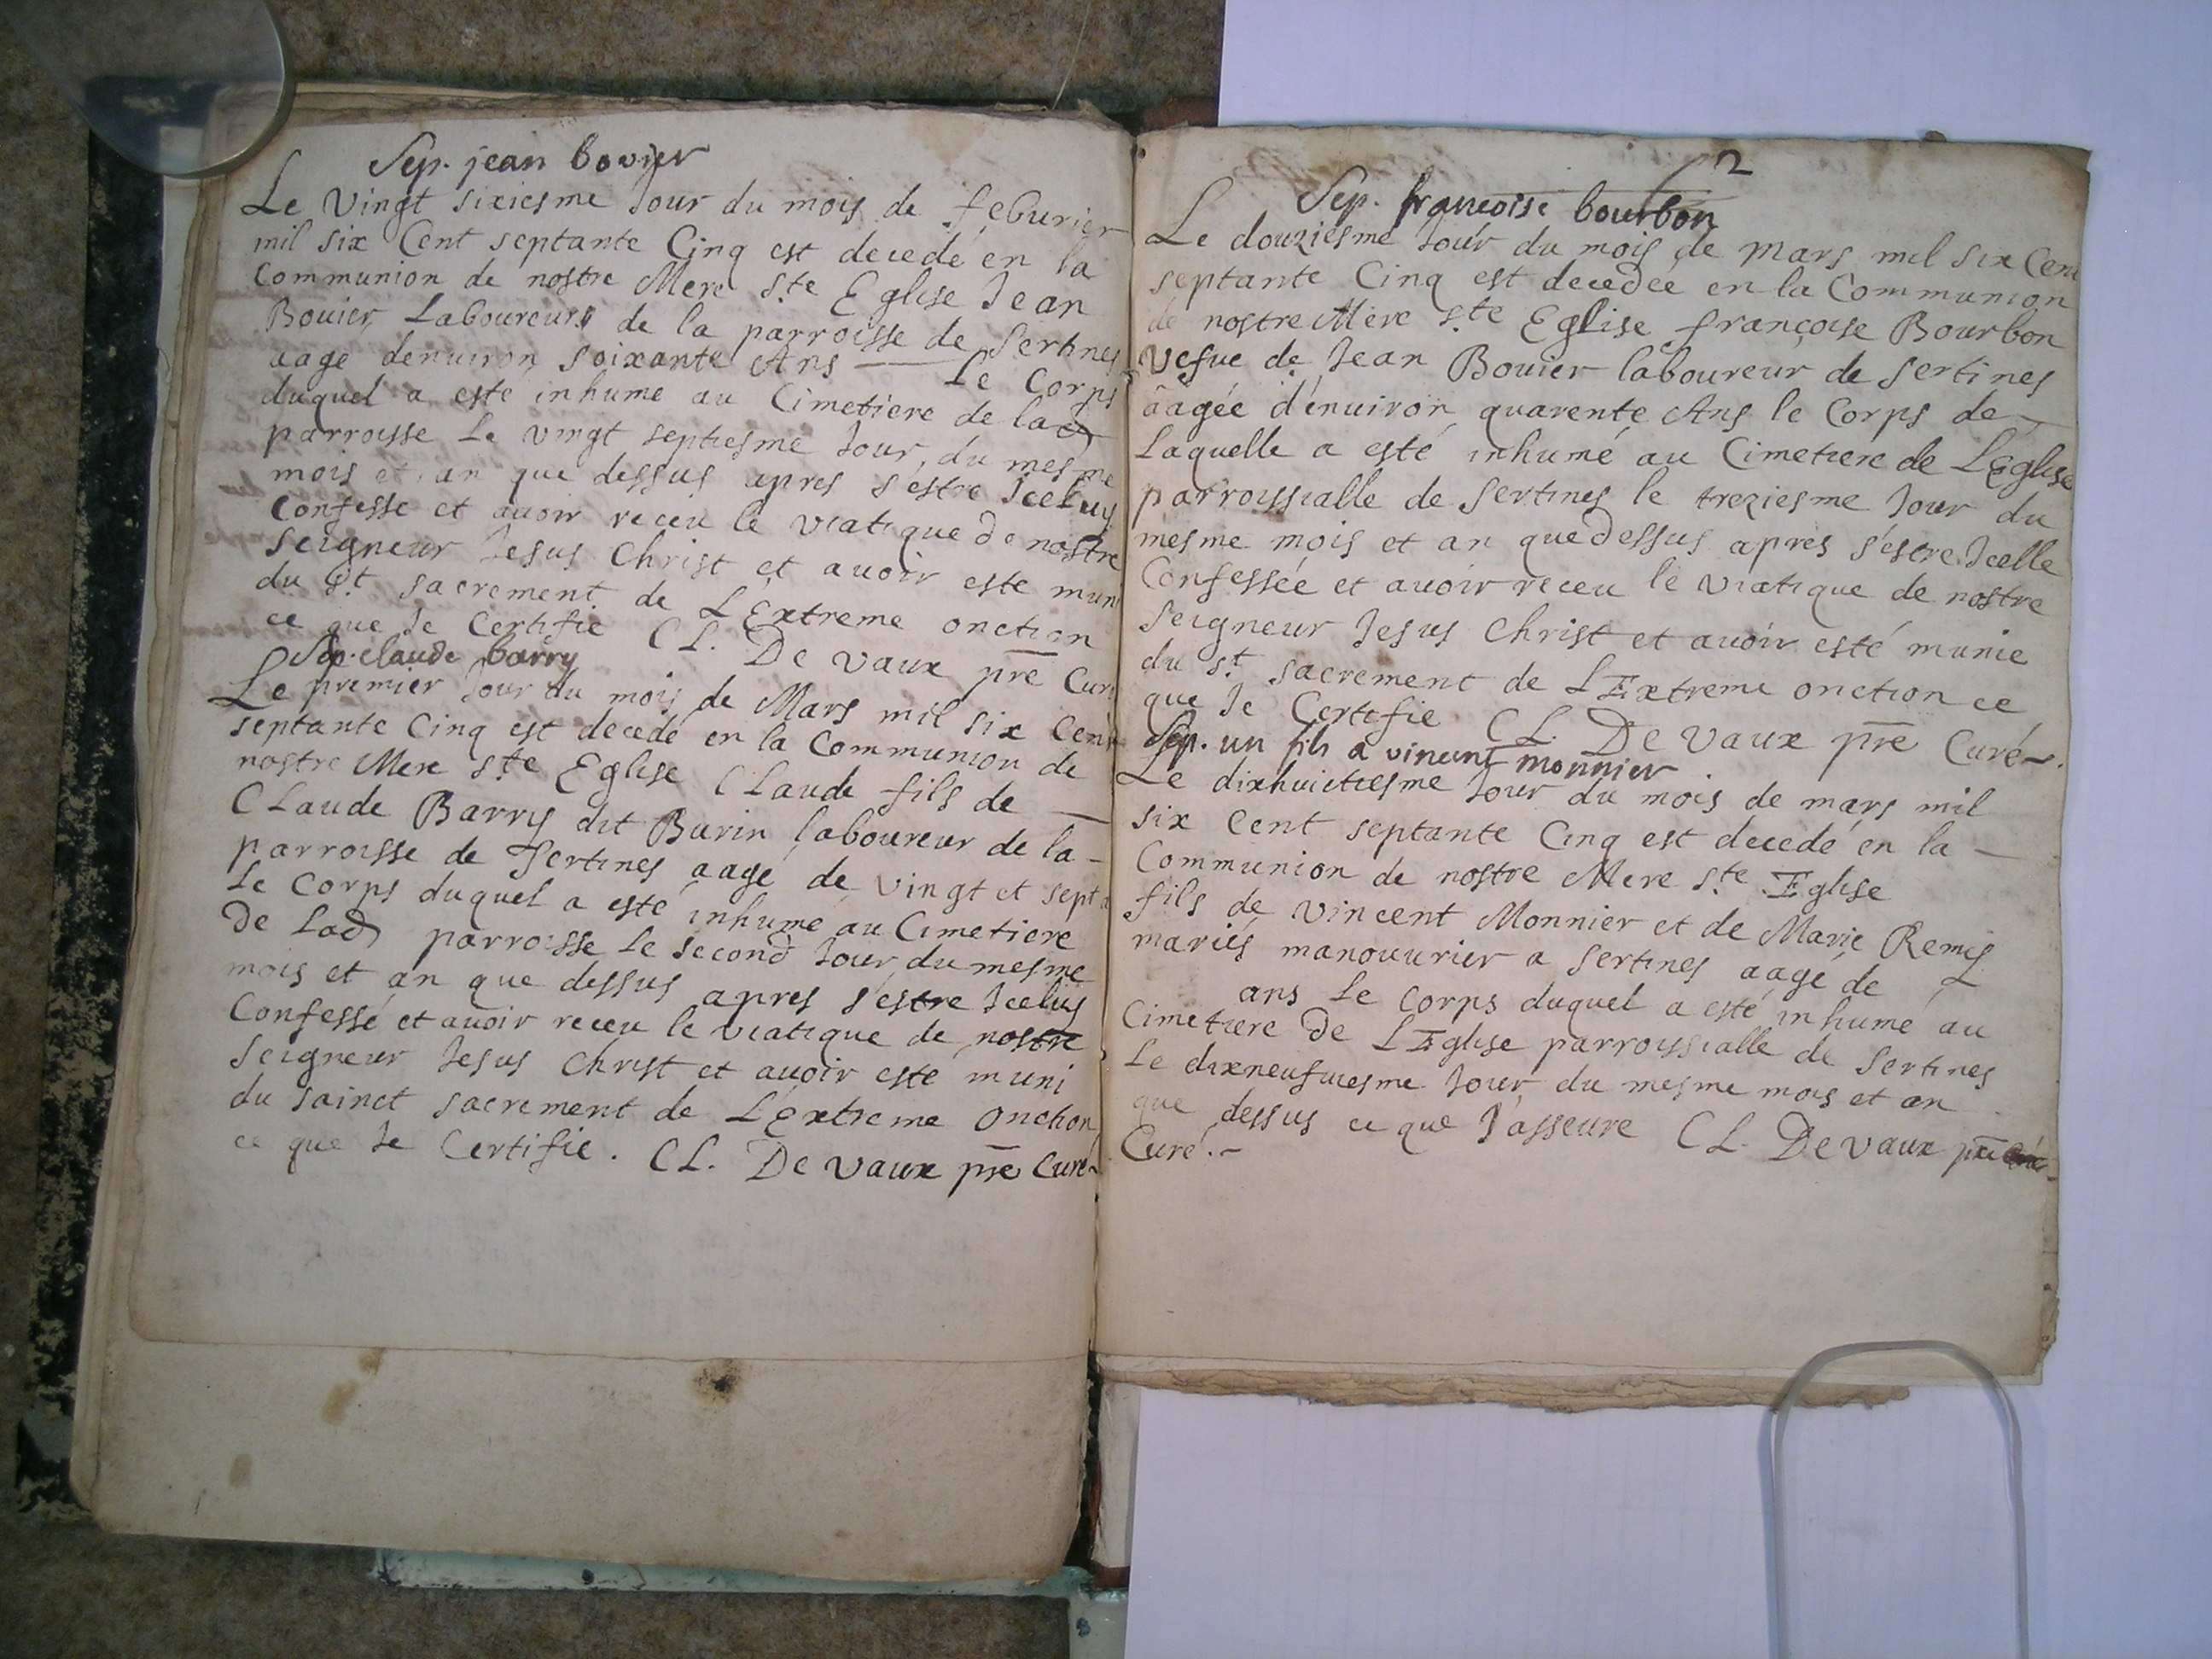 Sep. jean bovier
Le Vingt sixiesme Jour du mois de feburier
mil six Cent septante Cinq est decedé en la
Communion de nostre Mere Ste Eglise Jean
Bouier Laboureur de la parroisse de Sertines
aage denuiron soixante Ans — Le Corps
duquel a esté inhume au Cimetiere de lad
parroisse Le vingt septiesme Jour du mesme
mois et an que dessus apres s'estre Iceluy
Confesse et auoir receu le viatique de nostre
Seigneur Jesus Christ et auoir este muni
du St sacrement de L'Extreme onction
ce que Je Certifie CL. De vaux pre Curé
Sep. claude barry
Le premier Jour du mois de Mars mil six Cent
septante Cinq est decede en la Communion de
nostre Mere Ste Eglise CLaude fils de —
CLaude Barry dit Burin laboureur de la -
parroisse de Sertines aagé de vingt et sept a
Le Corps duquel a esté inhumé au Cimetiere
de Lad parroisse Le second Jour du mesme
mois et an que dessus apres s'estre Iceluy
Confessé et auoir receu le viatique de nostre
Seigneur Jesus Christ et auoir este muni
du sainct sacrement de L'Extreme Onction
ce que Je Certifie. CL. De vaux pre Curé
2
Sep. francoise bourbon
Le douziesme Jour du mois de Mars mil six Cent
septante Cinq est decedée en la Communion
de nostre Mere Ste Eglise françoise Bourbon
Vefue de Jean Bouier laboureur de Sertines
aagée d'enuiron quarente Ans le Corps de
Laquelle a esté inhumé au Cimetiere de L'Eglise
parroissialle de Sertines le treziesme Jour du
mesme mois et an que dessus apres s'estre Icelle
Confessée et auoir receu le viatique de nostre
Seigneur Jesus Christ et auoir esté munie
du St sacrement de L'Extreme onction ce
que Je Certifie CL. De vaux pre Curé.
Sep. un fils a vincent monnier
Le dixhuictiesme Jour du mois de mars mil
six Cent septante Cinq est decedé en la —
Communion de nostre Mere Ste Eglise
fils de vincent Monnier et de Marie Remy
mariés manouurier a Sertines aagé de
ans Le Corps duquel a esté inhumé au
Cimetiere de L'Eglise parroissialle de Sertines
Le dixneufuiesme Jour du mesme mois et an
que dessus ce que J'asseure CL. De vaux pre
Curé.